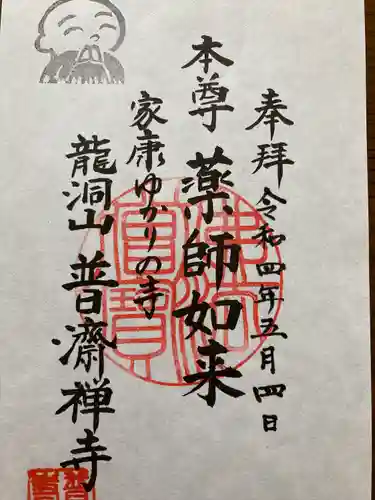 奉拝 令和四年五月四日
本尊 薬師如来
家康ゆかりの寺
龍洞山 普濟禅寺
佛法僧寶